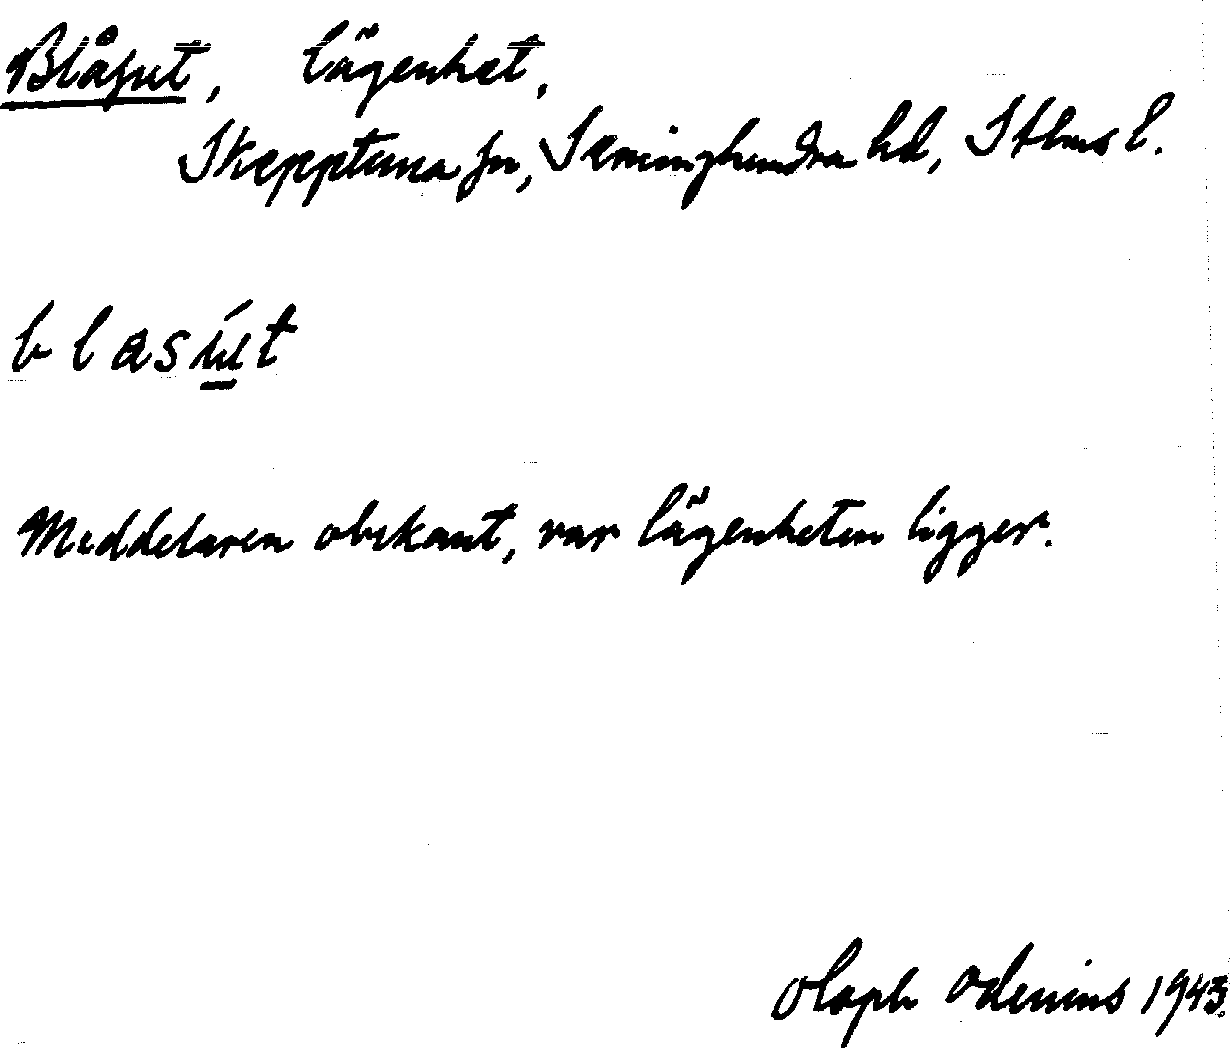 Blåsut, lägenhet,
Skepptuna sn, Seminghundra hd, Sthms l.
blasút
Meddelaren obekant, var lägenheten ligger.
Olaph Odenius 1943.